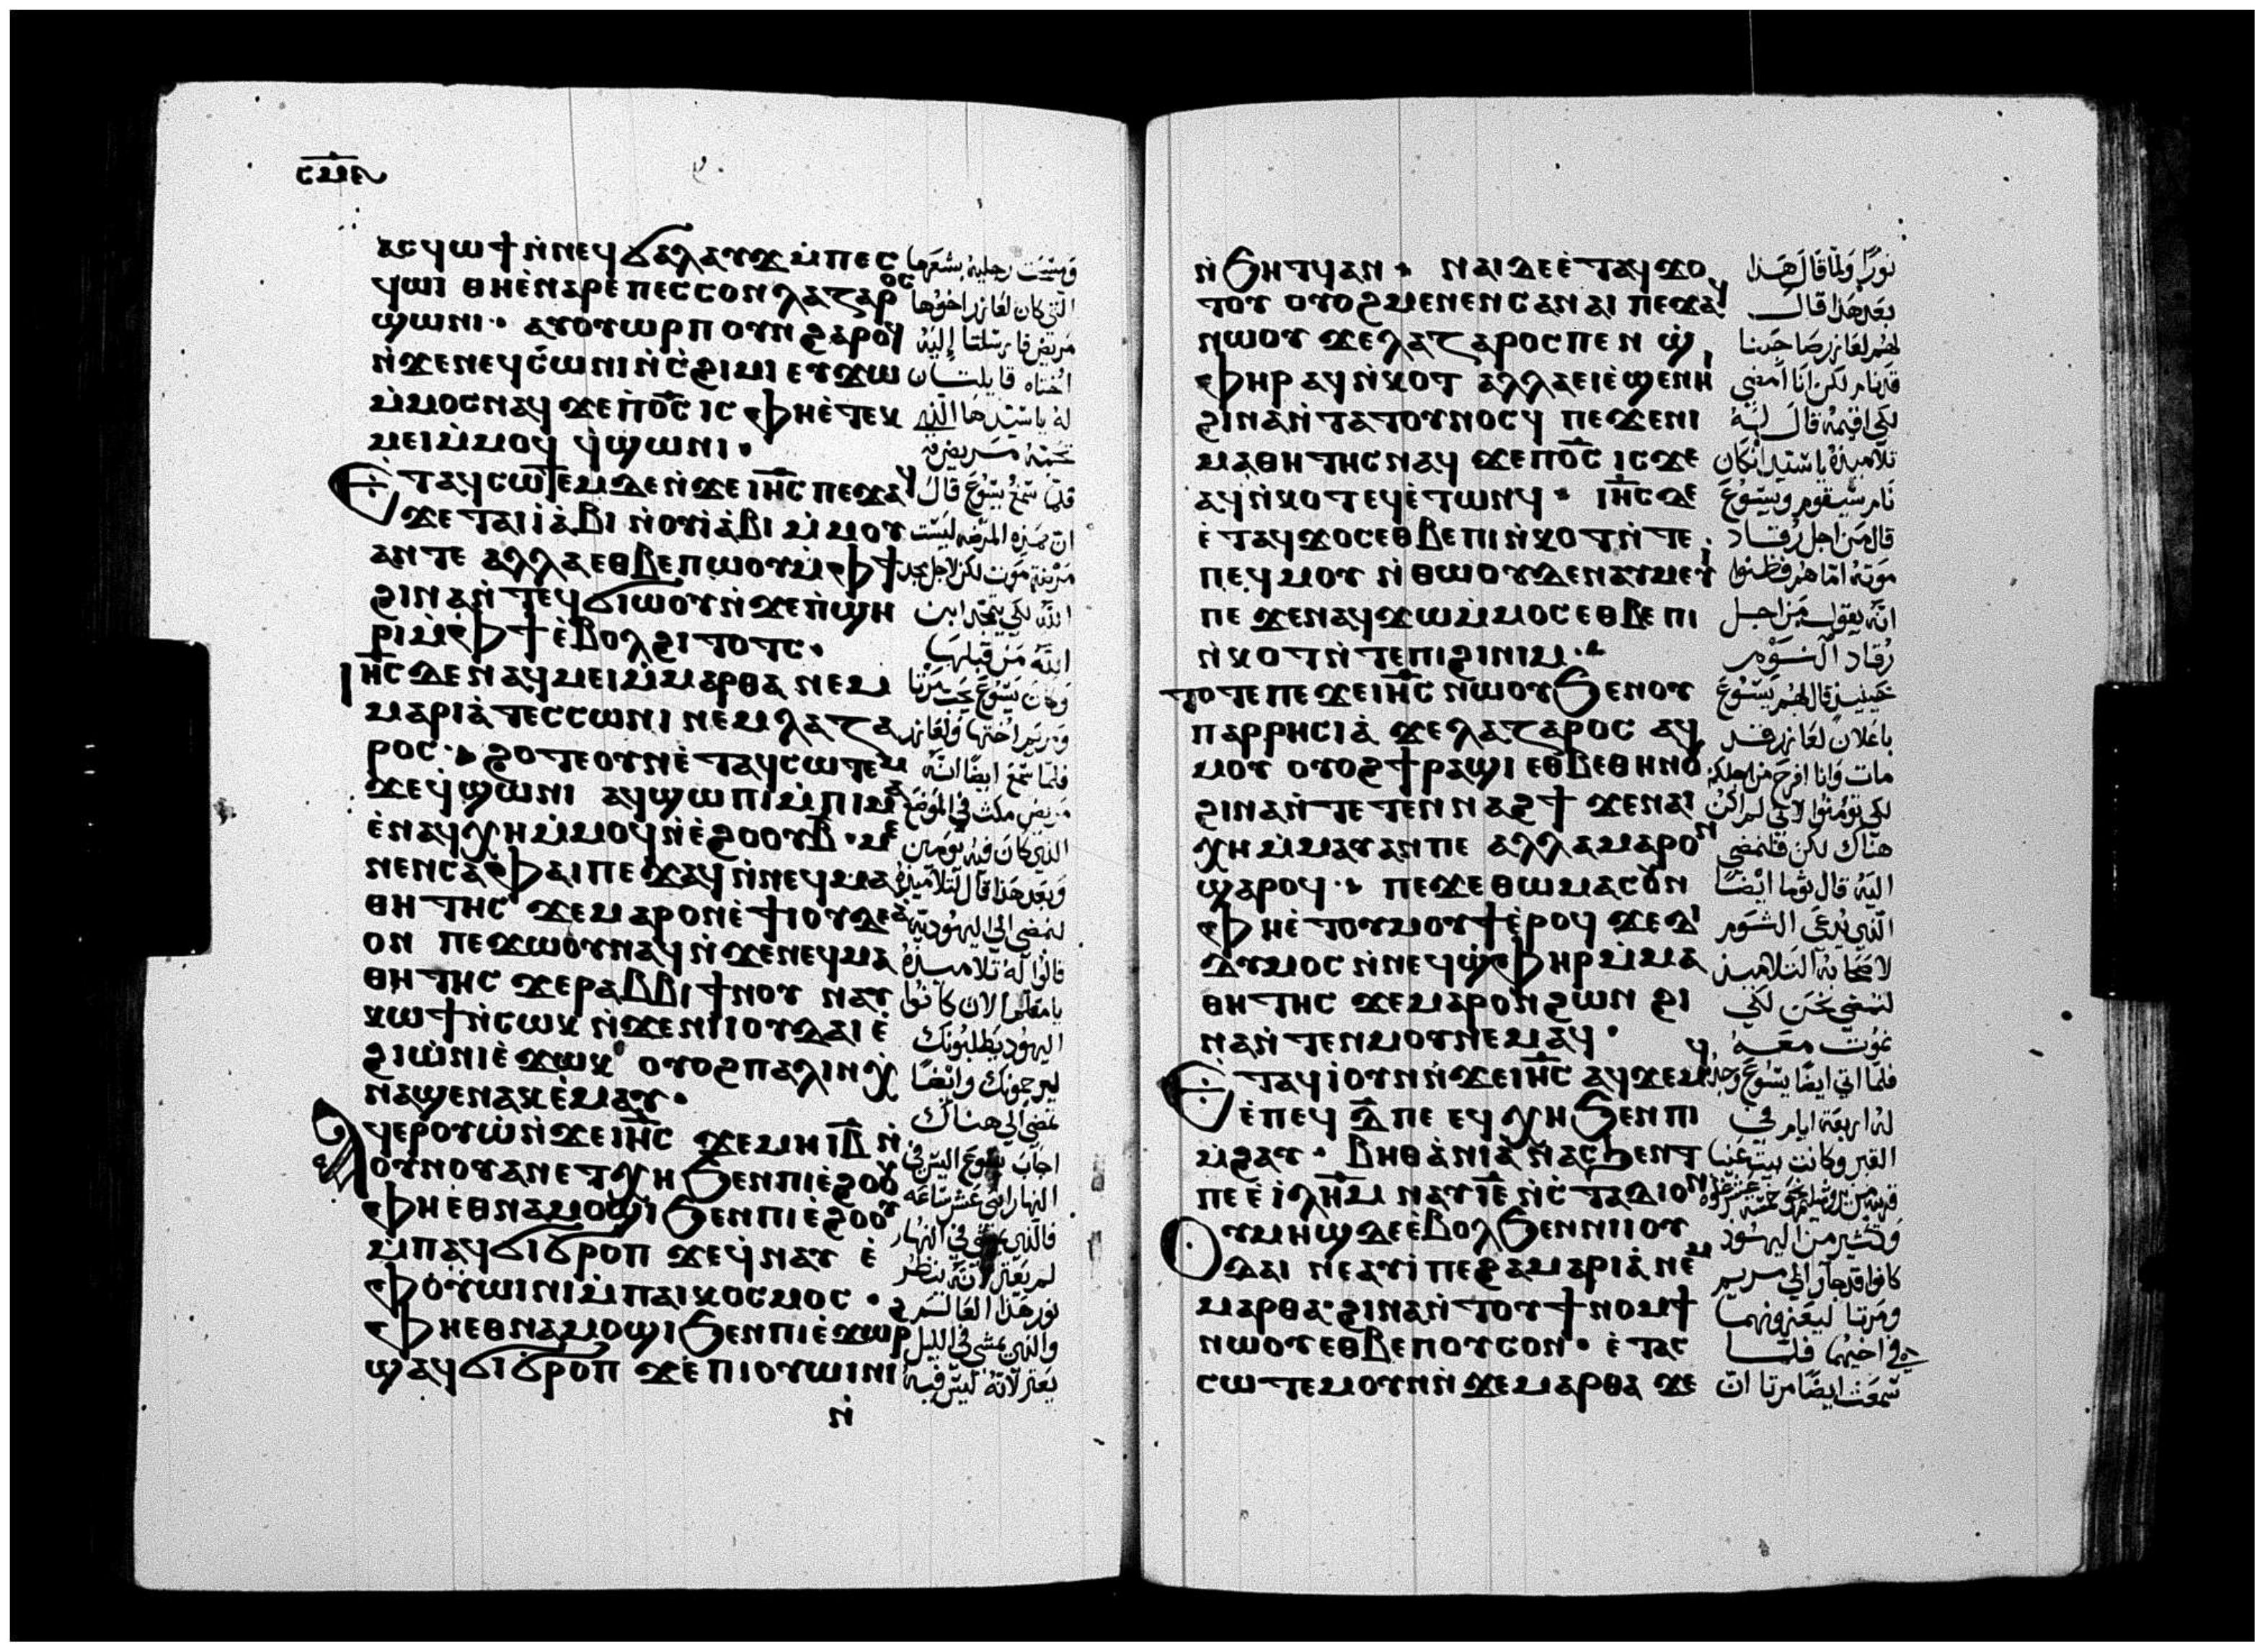 ⲥⲙⲋ
ⲁⲥϥⲱϯ ⲛ̀ⲛⲉϥϭⲁⲗⲁⲩϫ ⲙ̀ⲡⲉⲥ
ϥⲱⲓ ⲑⲏⲉ̀ⲛⲁⲣⲉ ⲡⲉⲥⲥⲟⲛ ⲗⲁⲍⲁⲣⲟⲥ
ϣⲱⲛⲓ ⲁⲩⲟⲩⲱⲣⲡ ⲟⲩⲛ ϩⲁⲣⲟϥ
ⲛ̀ϫⲉⲛⲉϥⲥⲱⲛⲓ ⲛ̀ⲥ̀ϩⲓⲙⲓ ⲉⲩϫⲱ
ⲙ̀ⲙⲟⲥ ⲛⲁϥ ϫⲉ ⲡ̀ⲟ̅ⲥ̅ ⲓⲥ ⲫⲏⲉ̀ⲧⲉⲕ
ⲙⲉⲓ ⲙ̀ⲙⲟϥ ϥ̀ϣⲱⲛⲓ.
Ⲉ̀ⲧⲁϥⲥⲱⲧⲉⲙ ⲇⲉ ⲛ̀ϫⲉ ⲓⲏ̅ⲥ̅ ⲡⲉϫⲁϥ
ϫⲉ ⲧⲁⲓⲓ̀ⲁ̀ⲃⲓ ⲛ̀ⲟⲩⲓ̀ⲁ̀ⲃⲓ ⲙ̀ⲙⲟⲩ
ⲁⲛ ⲧⲉ ⲁⲗⲗⲁ ⲉⲑⲃⲉ ⲡⲱⲟⲩ ⲙ̀ⲫϯ
ϩⲓⲛⲁ ⲛ̀ⲧⲉϥϭⲓⲱⲟⲩ ⲛ̀ϫⲉ ⲡ̀ϣⲏ
ⲣⲓ ⲙ̀ⲫϯ ⲉ̀ⲃⲟⲗ ϩⲓⲧⲟⲧⲥ.
Ⲓⲏ̅ⲥ̅ ⲇⲉ ⲛⲁϥⲙⲉⲓ ⲙ̀ⲙⲁⲣⲑⲁ ⲛⲉⲙ
ⲙⲁⲣⲓⲁ̀ ⲧⲉⲥⲥⲱⲛⲓ ⲛⲉⲙ ⲗⲁⲍⲁ
ⲣⲟⲥ ϩⲟⲧⲉ ⲟⲩⲛ ⲉ̀ⲧⲁϥⲥⲱⲧⲉⲙ
ϫⲉ ϥ̀ϣⲱⲛⲓ ⲁϥϣⲱⲡⲓ ⲙ̀ⲡⲓⲙⲁ
ⲉ̀ⲛⲁϥⲭⲏ ⲙ̀ⲙⲟϥ ⲛ̀ⲉ̀ϩⲟⲟⲩ ⲃ̅ · ⲙⲉ
ⲛⲉⲛⲥⲁ ⲫⲁⲓ ⲡⲉϫⲁϥ ⲛ̀ⲛⲉϥⲙⲁ
ⲑⲏⲧⲏⲥ ϫⲉ ⲙⲁⲣⲟⲛ ⲉ̀ϯⲓⲟⲩⲇⲉⲁ̀
ⲟⲛ ⲡⲉϫⲱⲟⲩ ⲛⲁϥ ⲛ̀ϫⲉ ⲛⲉϥⲙⲁ
ⲑⲏⲧⲏⲥ ϫⲉ ⲣⲁⲃⲃⲓ ϯⲛⲟⲩ ⲛⲁⲩ
ⲕⲱϯ ⲛ̀ⲥⲱⲕ ⲛ̀ϫⲉ ⲛⲓⲓⲟⲩⲇⲁⲓ ⲉ̀
ϩⲓⲱ̀ⲛⲓ ⲉ̀ϫⲱⲕ ⲟⲩⲟϩ ⲡⲁⲗⲓⲛ ⲭ̀
ⲛⲁϣⲉⲛⲁⲕ ⲉ̀ⲙⲁⲩ.
Ⲁϥⲉⲣⲟⲩⲱ̀ ⲛ̀ϫⲉ ⲓⲏ̅ⲥ̅ ϫⲉ ⲙⲏ ⲓ̅ⲃ̅ ⲛ̀
ⲟⲩⲛⲟⲩ ⲁⲛ ⲉⲧⲭⲏ ϧⲉⲛ ⲡⲓⲉ̀ϩⲟⲟⲩ
ⲫⲏⲉ̀ⲑⲛⲁⲙⲟϣⲓ ϧⲉⲛ ⲡⲓⲉ̀ϩⲟⲟⲩ
ⲙ̀ⲡⲁϥϭⲓϭⲣⲟⲡ ϫⲉ ϥ̀ⲛⲁⲩ ⲉ̀
ⲫⲟⲩⲱⲓⲛⲓ ⲙ̀ⲡⲁⲓⲕⲟⲥⲙⲟⲥ.
ⲫⲏⲉⲑⲛⲁⲙⲟϣⲓ ϧⲉⲛ ⲡⲓⲉ̀ϫⲱⲣϩ
ϣⲁϥϭⲓϭⲣⲟⲡ ϫⲉ ⲡⲓⲟⲩⲱⲓⲛⲓ
ⲛ̀
ومسحت رجليه بشعرها
التي كان لعازر اخوها
مريض فارسلتا إليه
اختاه قايلتان
له يا سيد ها الذي
تحبه مريض
فلما سمع يسوع قال
ان هذه المرضه ليست
مرضة موت لكن لاجل مجد
الله لكي يتمجد ابن
الله من قبلها
وكان يسوع يحب مرتا
ومريم اختها ولعازر
فلما سمع ايضا انه
مريض مكث في الموضع
الذي كان فيه يومين
وبعد هذا قال لتلاميذه
لنمضي الي اليهودية
قالوا له تلاميذه
يا معلم الان كانوا
اليهود يطلبونك
ليرجموك وايضا
تمضي الي هناك
اجاب يسوع اليس في
النهار اثني عشر ساعه
فالذي يمشي في النهار
لم يعثر لانه ينظر
نور هذا العالم
والذي يمشي في الليل
يعثر لانه ليس فيه
ⲛ̀ϧⲏⲧϥ ⲁⲛ ⲛⲁⲓ ⲇⲉ ⲉ̀ⲧⲁϥϫⲟ
ⲧⲟⲩ ⲟⲩⲟϩ ⲙⲉⲛⲉⲛⲥⲁ ⲛⲁⲓ ⲡⲉϫⲁϥ
ⲛⲱⲟⲩ ϫⲉ ⲗⲁⲍⲁⲣⲟⲥ ⲡⲉⲛϣ̀
ⲫⲏⲣ ⲁϥⲛ̀ⲕⲟⲧ ⲁⲗⲗⲁ ⲉⲓⲉ̀ϣⲉⲛⲏⲓ
ϩⲓⲛⲁ ⲛ̀ⲧⲁⲧⲟⲩⲛⲟⲥϥ ⲡⲉϫⲉ ⲛⲓ
ⲙⲁⲑⲏⲧⲏⲥ ⲛⲁϥ ϫⲉ ⲡ̀ⲟ̅ⲥ̅ ⲓⲥϫⲉ
ⲁϥⲛ̀ⲕⲟⲧ ⲉϥⲉ̀ⲧⲱⲛϥ · ⲓⲏ̅ⲥ̅ ⲇⲉ
ⲉ̀ⲧⲁϥϫⲟⲥ ⲉⲑⲃⲉ ⲡⲓⲛ̀ⲕⲟⲧ ⲛ̀ⲧⲉ
ⲡⲉϥⲙⲟⲩ ⲛ̀ⲑⲱⲟⲩ ⲇⲉ ⲛⲁⲩⲙⲉⲩⲓ
ⲡⲉ ϫⲉ ⲛⲁϥϫⲱ ⲙ̀ⲙⲟⲥ ⲉⲑⲃⲉ ⲡⲓ
ⲛ̀ⲕⲟⲧ ⲛ̀ⲧⲉ ⲡⲓϩⲓⲛⲓⲙ.
ⲧⲟⲧⲉ ⲡⲉϫⲉ ⲓⲏ̅ⲥ̅ ⲛⲱⲟⲩ ϧⲉⲛ ⲟⲩ
ⲡⲁⲣⲣⲏⲥⲓⲁ̀ ϫⲉ ⲗⲁⲍⲁⲣⲟⲥ ⲁϥ
ⲙⲟⲩ ⲟⲩⲟϩ ϯⲣⲁϣⲓ ⲉⲑⲃⲉ ⲑⲏⲛⲟⲩ
ϩⲓⲛⲁ ⲛ̀ⲧⲉⲧⲉⲛⲛⲁϩϯ ϫⲉ ⲛⲁⲓ
ⲭⲏ ⲙ̀ⲙⲁⲩ ⲁⲛ ⲡⲉ ⲁⲗⲗⲁ ⲙⲁⲣⲟⲛ
ϣⲁⲣⲟϥ ⲡⲉϫⲉ ⲑⲱⲙⲁⲥ ⲟⲛ
ⲫⲏⲉ̀ⲧⲟⲩⲙⲟⲩϯ ⲉ̀ⲣⲟϥ ϫⲉ ⲇⲓ
ⲇⲩⲙⲟⲥ ⲛ̀ⲛⲉϥϣ̀ⲫⲏⲣ ⲙ̀ⲙⲁ
ⲑⲏⲧⲏⲥ ϫⲉ ⲙⲁⲣⲟⲛ ϩⲱⲛ ϩⲓ
ⲛⲁ ⲛ̀ⲧⲉⲛⲙⲟⲩ ⲛⲉⲙⲁϥ.
Ⲉ̀ⲧⲁϥⲓ̀ ⲟⲩⲛ ⲛ̀ϫⲉ ⲓⲏ̅ⲥ̅ ⲁϥϫⲉⲙϥ
ⲉ̀ⲡⲉϥ ⲇ̅ ⲡⲉ ⲉϥⲭⲏ ϧⲉⲛ ⲡⲓ
ⲙ̀ϩⲁⲩ · ⲃⲏⲑⲁ̀ⲛⲓⲁ̀ ⲛⲁⲥϧⲉⲛⲧ
ⲡⲉ ⲉ̀ⲓ̅ⲗ̅ⲏ̅ⲙ̅ ⲛⲁⲩ ⲓ̅ⲉ̅ ⲛ̀ⲥ̀ⲧⲁⲇⲓⲟⲛ
Ⲟⲩⲙⲏϣ ⲇⲉ ⲉ̀ⲃⲟⲗ ϧⲉⲛ ⲛⲓⲓⲟⲩ
ⲇⲁⲓ ⲛⲉ ⲁⲩⲓ̀ ⲡⲉ ϩⲁ ⲙⲁⲣⲓⲁ̀ ⲛⲉⲙ
ⲙⲁⲣⲑⲁ ϩⲓⲛⲁ ⲛ̀ⲧⲟⲩϯⲛⲟⲙϯ
ⲛⲱⲟⲩ ⲉⲑⲃⲉ ⲡⲟⲩⲥⲟⲛ · ⲉ̀ⲧⲁⲥ
ⲥⲱⲧⲉⲙ ⲟⲩⲛ ⲛ̀ϫⲉ ⲙⲁⲣⲑⲁ ϫⲉ
نورا ولما قال هذا
بعد هذا قال
لهم لعازر صاحبنا
قد نام لكن انا امضي
لكي اقيمه قال له
تلاميذه يا سيد ان كان
نام سيقوم ويسوع
قال من اجل رقاد
موته اما هم فظنوا
انه يقول من اجل
رقاد النوم
حينيذ قال لهم يسوع
باعلان لعازر قد
مات وانا افرح من اجلكم
لكي تؤمنوا لاني لم اكن
هناك لكن فلنمضي
اليه قال توما ايضا
الذي يدعي التوم
لاصحابه التلاميذ
لنمضي نحن لكي
نموت معه
فلما اتي ايضا يسوع وجد
له اربعة ايام في
القبر وكانت بيت عنيا
وكثير من اليهود
كانوا قد جاوا الي مريم
ومرتا ليعزونهما
في اخيهما فلما
سمعت ايضا مرتا ان